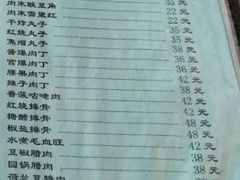 肉末酸豆角 35元
肉末雪里红 22元
干炸丸子 35元
红烧丸子 35元
焦熘丸子 38元
酱爆肉丁 36元
宫爆肉丁 36元
腰果肉丁 42元
辣子肉丁 38元
香菇咕咾肉 42元
红烧排骨 48元
糖醋排骨 48元
椒盐排骨 48元
水煮毛血旺 42元
豆椒腊肉 38元
回锅腊肉 38元
荷兰豆腊肉 38元